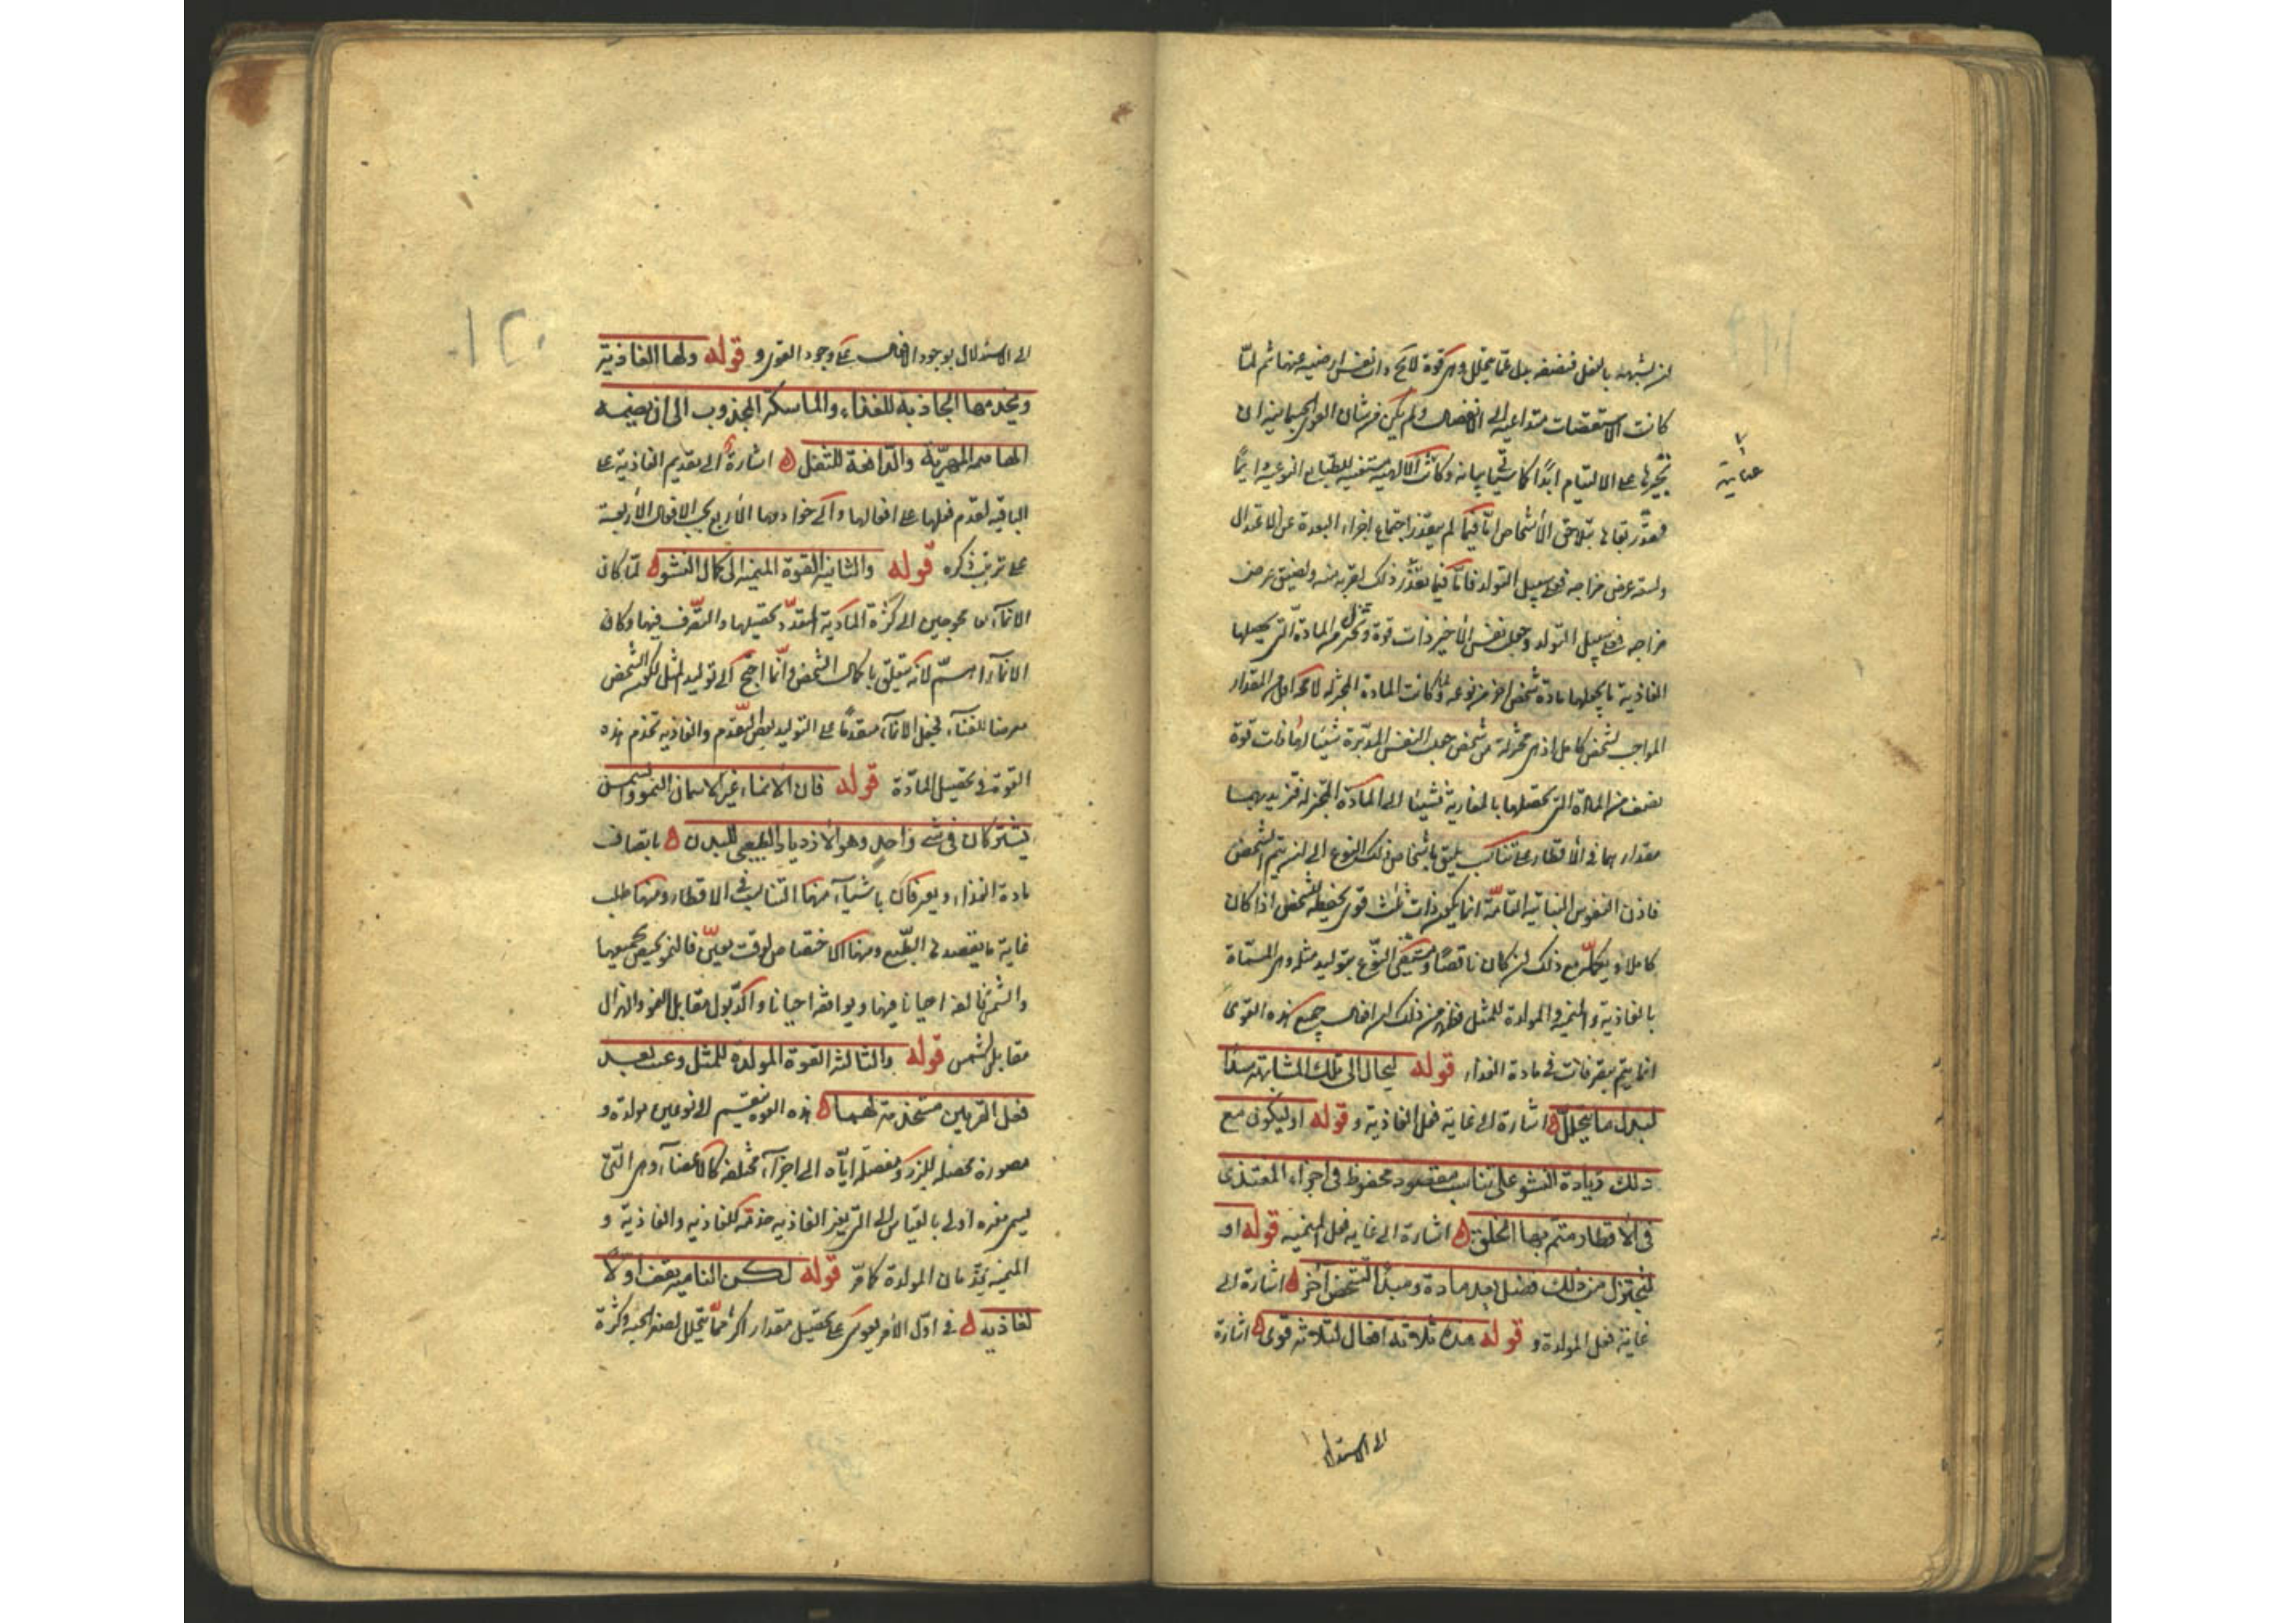 لان يشبهه بالفعل فتضيفه بدل عما يتحلل وهي قوة لا محالة ذات نفس ارضيه عنها ثم لما
كانت الاستقصات متداعية الى الانفصال ولم يكن من شان القوى الجسمانية ان
تجبرها على الالتيام ابدًا كما سياتي بيانه وكانت الالهية مستبقية للطبايع النوعية دايمًا
عناية
فقدر بقاها بتلاحق الأشخاص امّا فيما لم يتعذر اجتماع اجزاء لبعده عن الاعتدال
ولسعة عرض مزاجه فعلى سبيل التولد فامّا فيما تعذّر ذلك لقربه منه ولضيق عرض
مزاجه فعلى سبيل التوليد وجعل نفس الأخير ذات قوة تختزل من المادة التي تحصلها
الغاذية ما يجعلها مادة شخص اخر من نوعه ولما كانت المادة المختزلة لا محالة اقل من المقدار
الواجب لشخص كامل اذ هي مختزلة من شخص جعلت النفس المدبّرة لها ذات قوة
تضيف من المادة التي تحصلها الغاذية شيئًا فشيئا الى المادة المختزلة فتزيد بها
مقدارها في الأقطار على تناسب يليق باشخاص ذلك النوع الى ان يتم الشخص
فاذن النفوس النباتية التامّة انما يكون ذات ثلث قوى تحفظ الشخص اذا كان
كاملا وتكمّله مع ذلك ان كان ناقصًا وتستبقى النوع بتوليد مثله وهي المسمّاة
بالغاذية والمنمية والمولدة للمثل فظهر من ذلك ان افعال جميع هذه القوى
انما يتم بتصرفات في مادة الغذاء قوله ليحال الى تلك المشابهة سدًّا
لبدل ما يتحلل ه اشارة الى غاية فعل الغاذية و قوله او ليكون مع
ذلك زيادة النشو على تناسب مقصود محفوظ في اجزاء المغتذى
فى الأقطار متمّ بها الخلق ه اشارة الى غاية فعل المنمية قوله او
ليختزل من ذلك فضل يعد مادة ومبدأ لشخص اخر ه اشارة الى
غاية فعل المولدة و قوله هذه ثلاثة افعال لثلاثة قوى ه اشارة
الى الاستدلال
١٢٠
الى الاستدلال بوجود الافعال على وجود القوى و قوله ولها الغاذية
ويخدمها الجاذبة للغذاء والماسكة للمجذوب الى ان يهضمه
الهاضمة المهرّية والدافعة للثفل ه اشارة الى تقديم الغاذية على
الباقية لتقدم فعلها على افعالها والى خوادمها الأربع بحسب الافعال الأربعة
على ترتيب ذكره قوله والثانية القوة المنمية الى كمال النشو ه لمّا كان
الانمآء محوجين الى كثرة المادية لتعدّد تحصيلها والتصرّف فيها وكان
الانمآء اهمّ لانه يتعلق باكمال الشخص وانّما احتيج الى توليد المثل لكون الشخص
معرضا للفنآء فجعل الانمآء متقدمًا على التوليد بعض التقدم والغاذية تخدم هذه
القوة فى تحصيل المادّة قوله فان الأنماء غير الاسمان النمو والسمن
يشتركان فى شئ واحد وهو الازدياد الطبيعى للبدن ه بانضياف
مادة الغذاء ويفترقان باشيآء منها التناسب فى الاقطار ومنها طلب
غاية ما يقصده الطبع ومنها الاختصاص لوقت معيّن فالنمو يختص بجميعها
والسمن يخالفه احيانا فيها ويوافقه احيانا والذبول مقابل النمو والهزال
مقابل السمن قوله والثالثة القوة المولدة للمثل وتنبعث بعد
فعل القوتين مستخدمة لهما ه هذه القوة تنقسم الى نوعين مولدة و
مصورة محصله للبزر ومفصله اياه الى اجزآء مختلفة كالاعضآء وهي التى
يسمى مغيره اولى بالقياس الى التى يغير الغاذية خدمة للغاذية والغاذية و
المنمية يخدمان المولدة كما مرّ قوله لكن النامية يقف اولًا
لغاذية ه فى اوّل الأمر يقوى على تحصيل مقدار اكثر مما يتحلل لصغر الجثة وكثرة